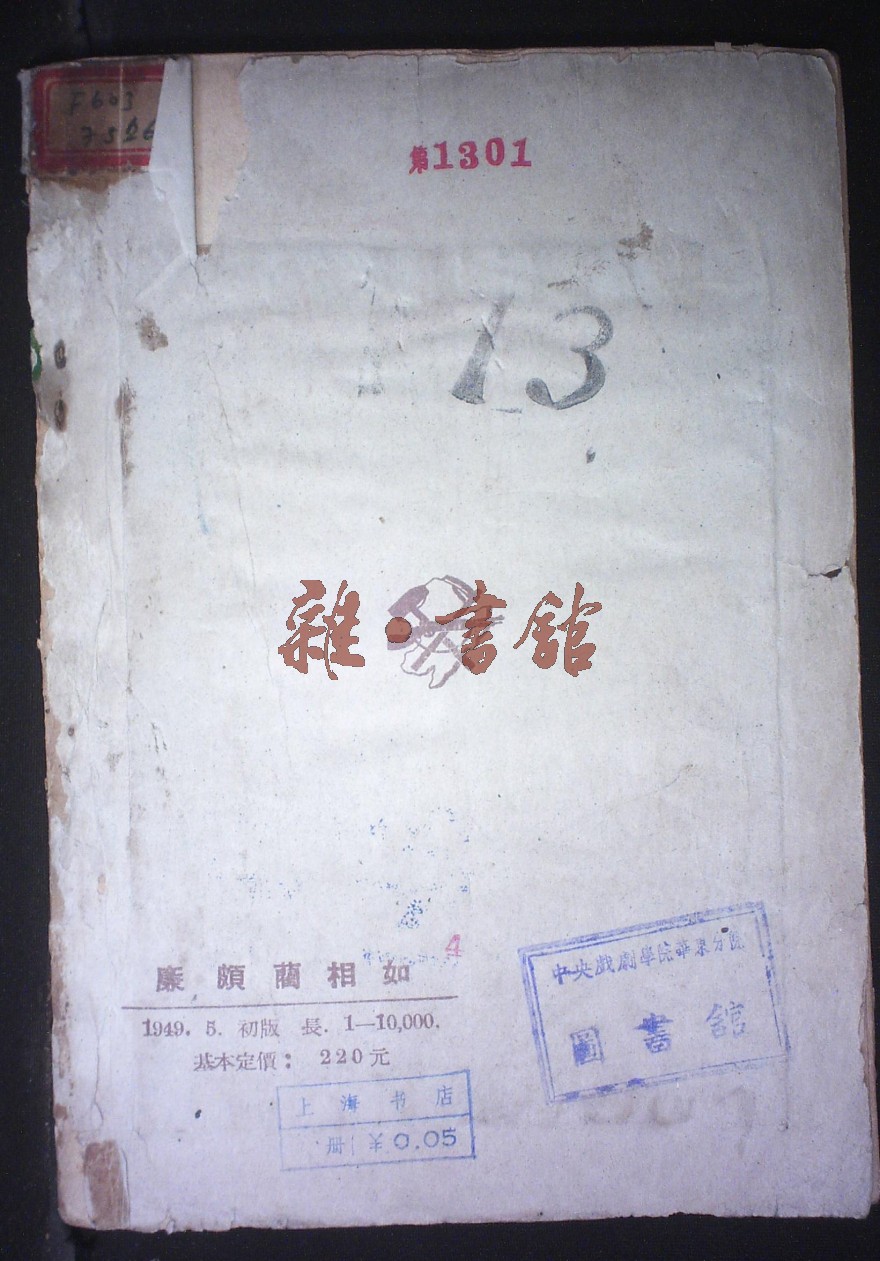 F603
7526
第1301
13
雜·書館
4
廉頗藺相如
1949. 5. 初版 長. 1—10,000.
基本定價： 220元
中央戏劇學院華東分院
圖書館
上海书店
册 ¥0.05